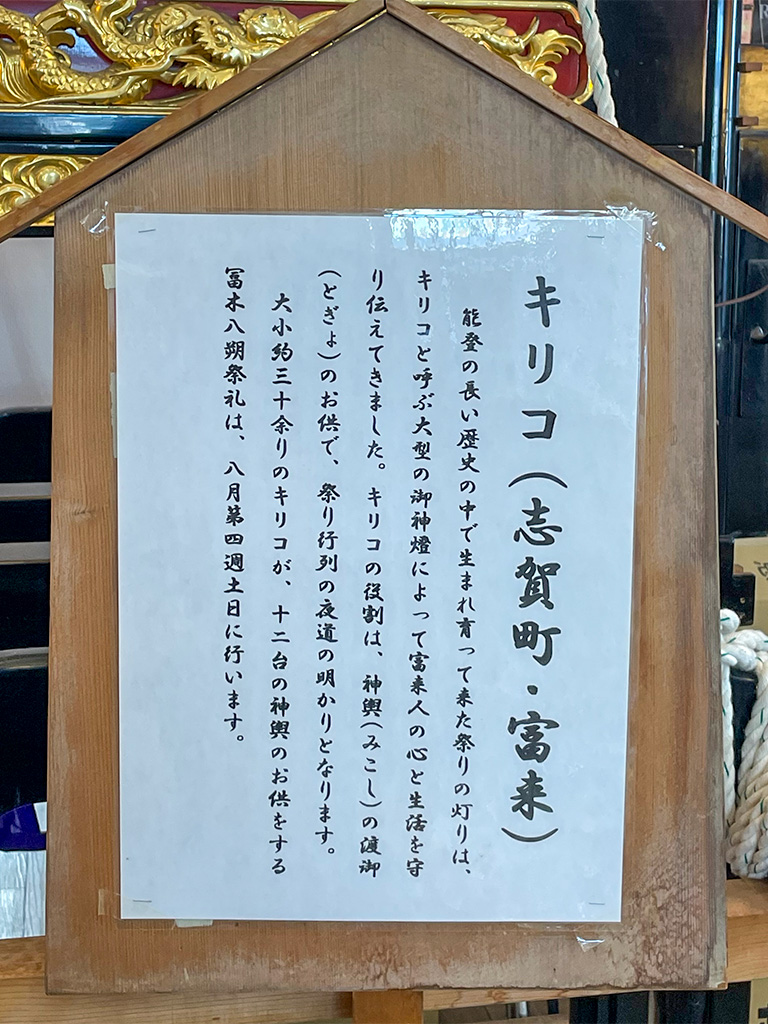 キリコ(志賀町・富来)
能登の長い歴史の中で生まれ育って来た祭りの灯りは、
キリコと呼ぶ大型の御神燈によって富来人の心と生活を守
り伝えてきました。キリコの役割は、神輿(みこし)の渡御
(とぎょ)のお供で、祭り行列の夜道の明かりとなります。
大小約三十余りのキリコが、十二台の神輿のお供をする
冨木八朔祭礼は、八月第四週土日に行います。